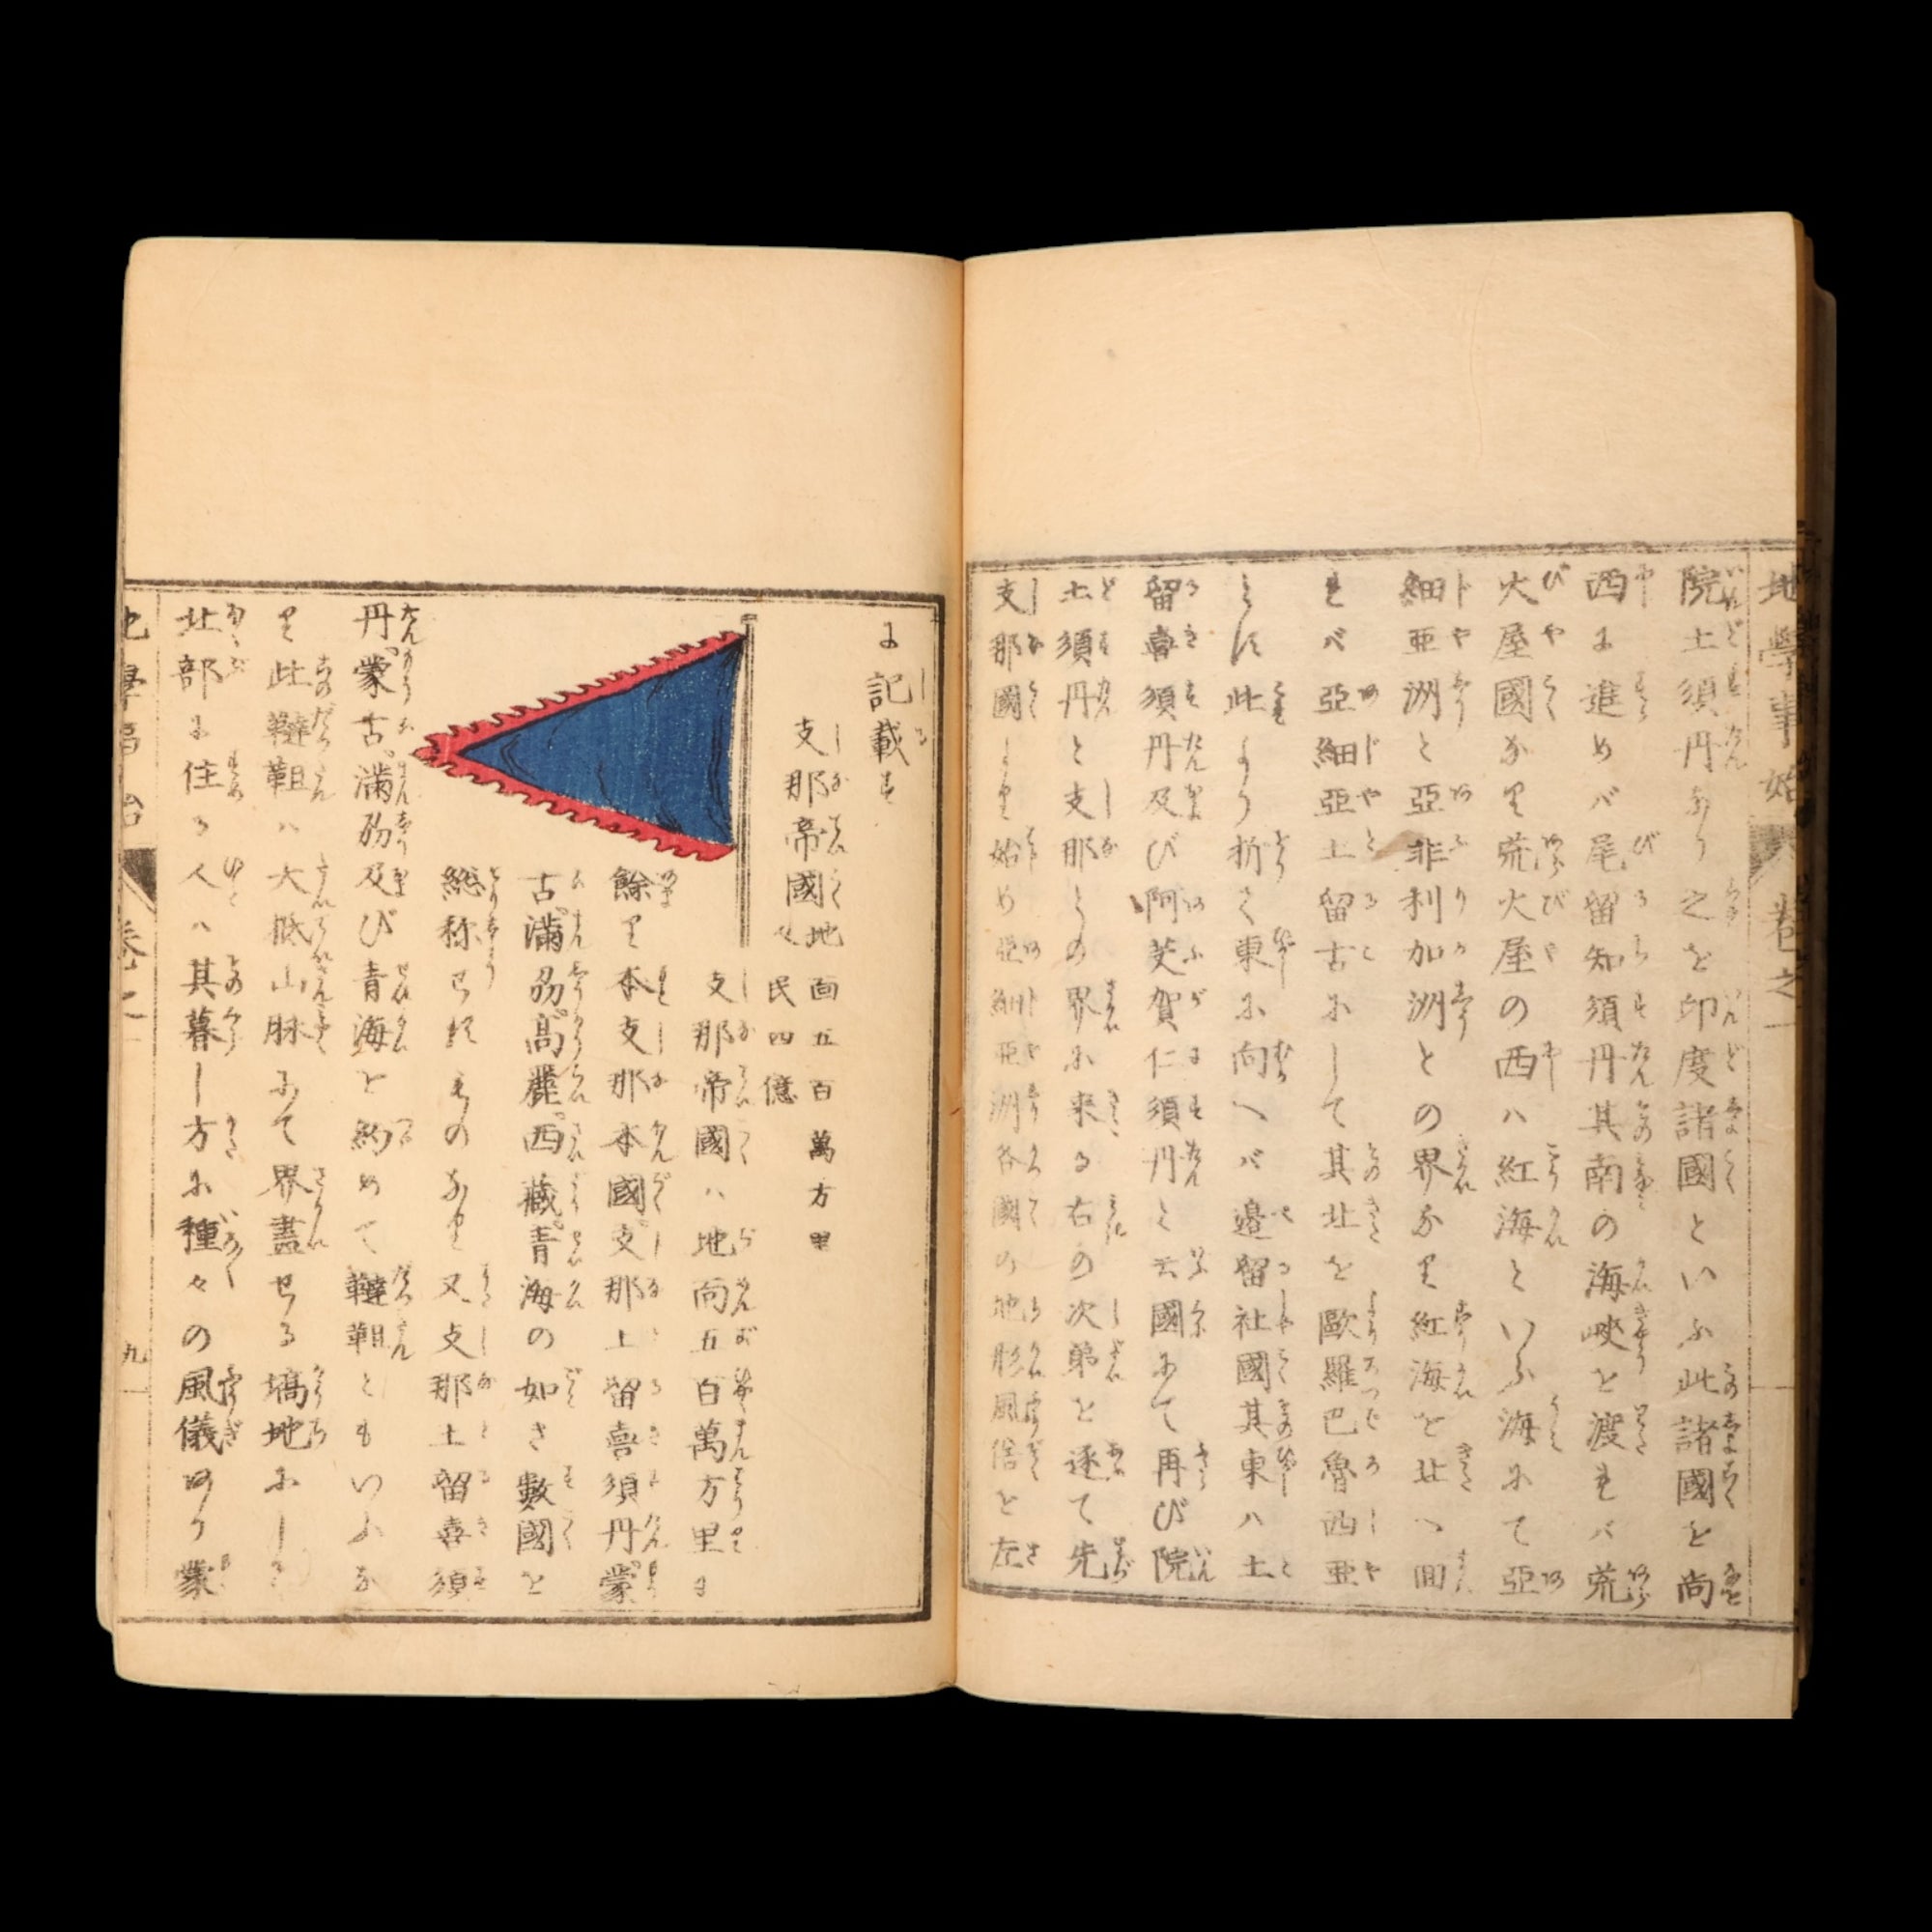 地學事始 卷之一
院土須丹あり之を印度諸國といふ此諸國を尚
西に進めバ尾留知須丹其南の海峽を渡れバ荒
火屋國なり荒火屋の西ハ紅海といふ海にて亞
細亞洲と亞非利加洲との界なり紅海を北へ回
れバ亞細亞土留古にして其北を歐羅巴魯西亞
とす此より折て東に向へバ邉留社國其東ハ土
留喜須丹及び阿芙賀仁須丹と云國にて再び院
土須丹と支那との界に来る右の次第を逐て先
支那國より始め亞細亞洲各國の地形風俗を左
に記載す
支那帝國 地面五百萬方里
人民四億
支那帝國ハ地面五百萬方里に
餘り本支那本國支那土留喜須丹蒙
古滿刕高麗西藏青海の如き數國を
総称せるものなり又支那土留喜須
丹蒙古滿刕及び青海を約めて韃靼ともいふな
り此韃靼ハ大抵山脉にて界盡せる塙地にして
北部に住る人ハ其暮し方に種々の風儀あり蒙
地學事始 卷之一 九